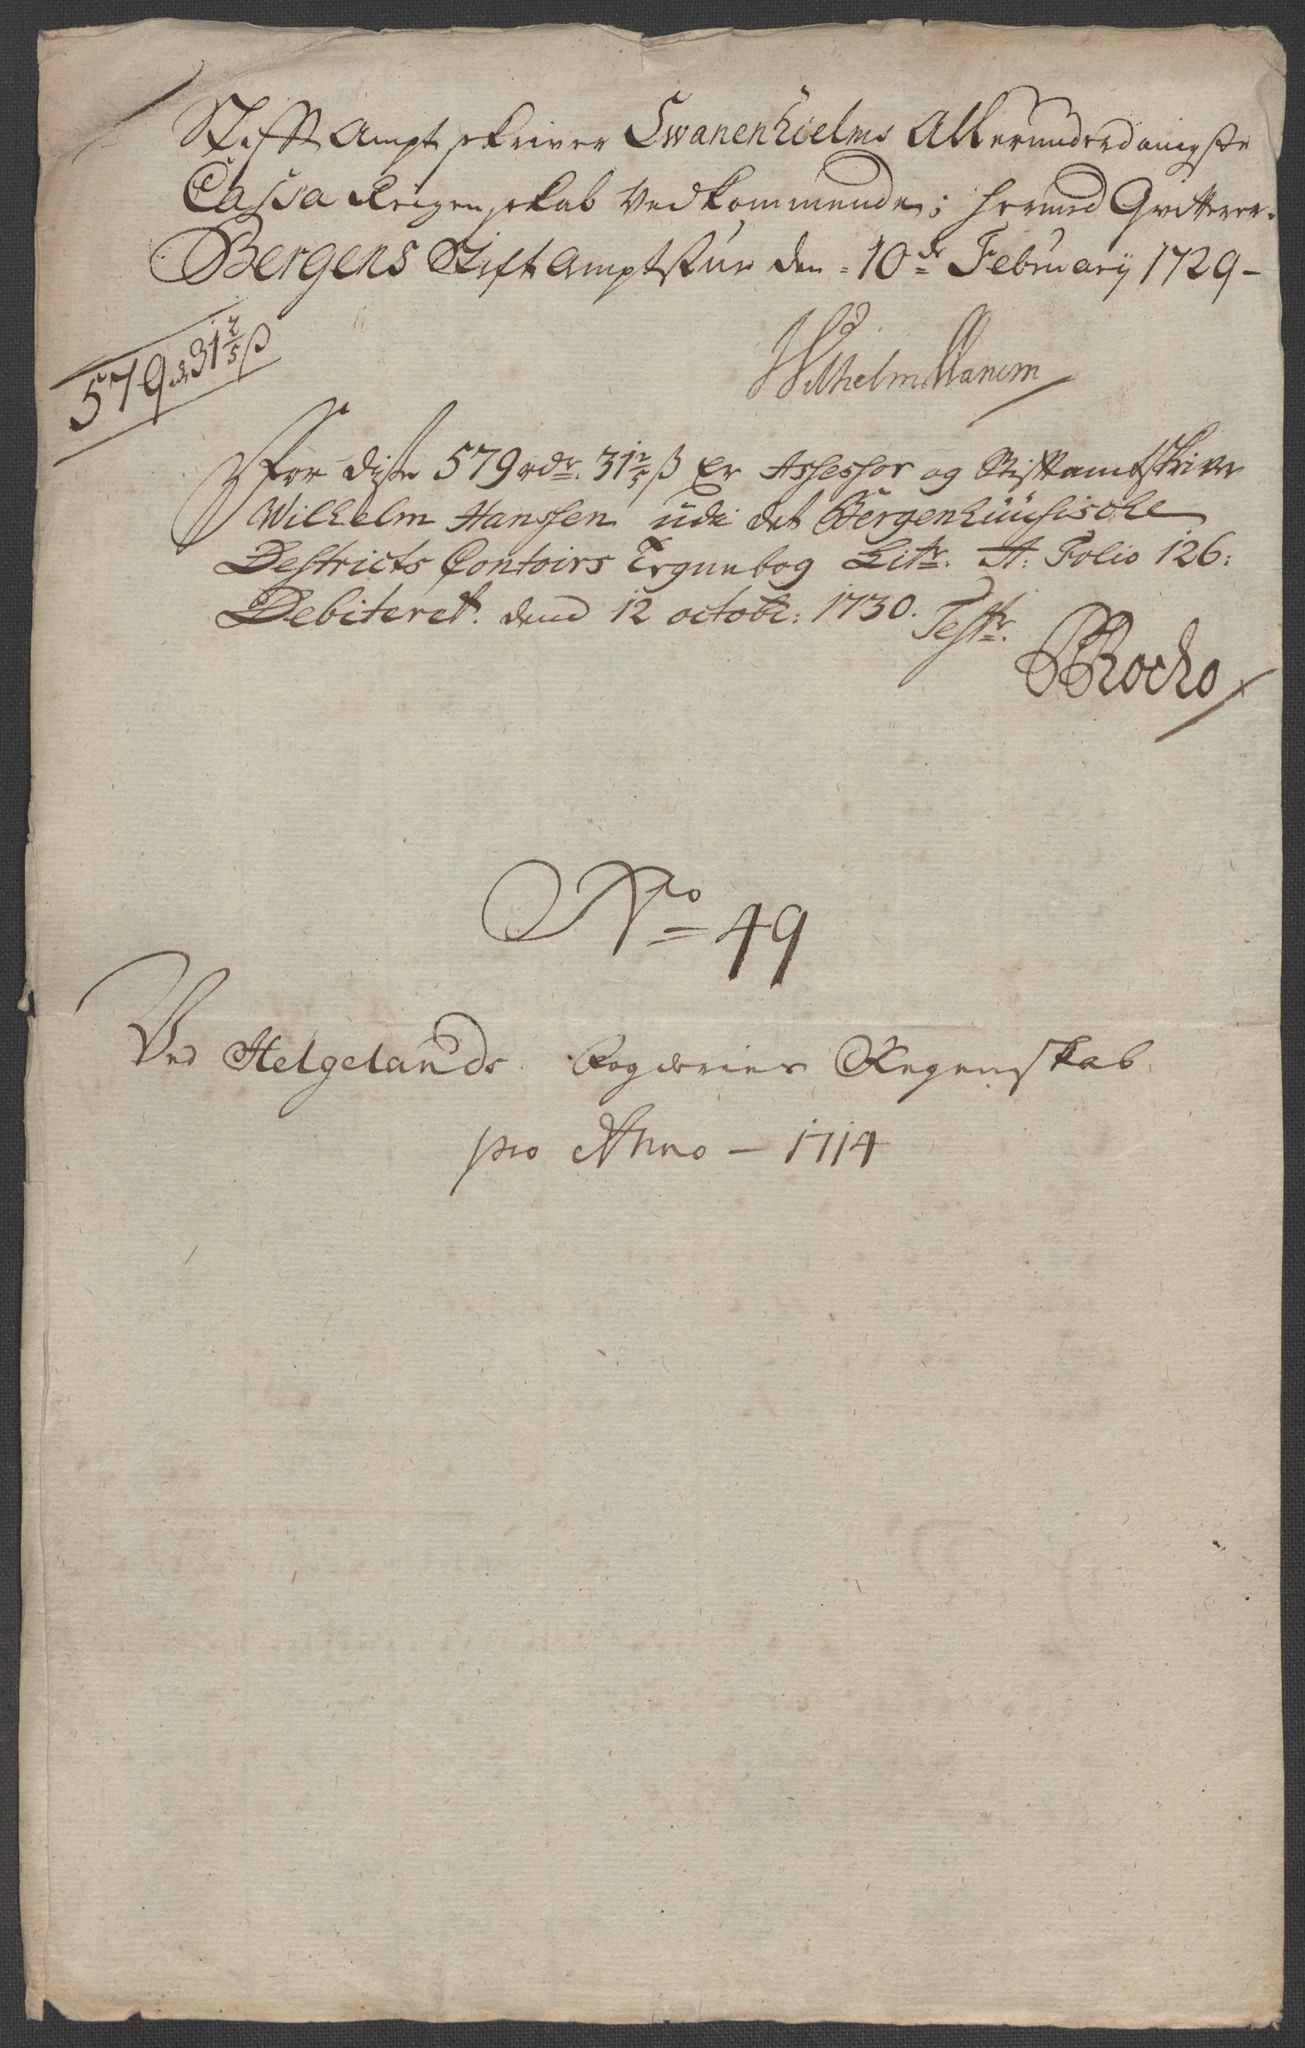 Stifft Ampt skriver Swanenhielms Allerunderdanigste
Cassa Reigenskab Vedkommende; hermed Qvitterer.
Bergens Stift Amptstue den 10de February 1729 –
579 rd 31 2/5 ß
Wilhelm Hansen
For disse 579 rdr. 31 2/5 ß Er Assessor og Stiftamtskriver
Wilhelm Hanssen udi det Bergenhuusische
Destricts Contoirs Bog Litr. A: Folio 126:
Debiteret. dend 12 octobr: 1730. Testr.
No 49
Ved Helgelands Fogderies Regenskab
pro Anno – 1714